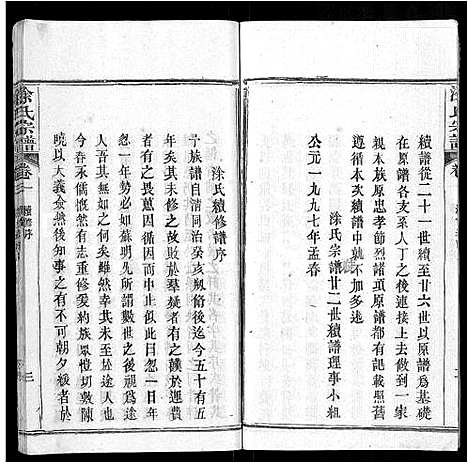 續譜從二十一世續至廿六世以原譜為基礎
在原譜各支系人丁之後連接上去做到一家
親本族原忠孝節烈譜頭原譜都有我們
遵循本次續譜中就不加多述
涂氏宗譜廿二世續譜理事小組
公元一九九七年孟春
涂氏續修譜序
予族譜自清同治癸亥剏脩後迄今五十有五
年矣其未修之故敗於羣疑者有之誤於運費
者有之而日中輒止此日忽一日年
忽一年勢必如蘇明允所謂數世之後視為途
人吾無如之何矣
今春承儒慨然有志重修爰約族眾愷切敦陳
曉以大義僉然後知事之有不可朝夕緩者於
涂氏宗譜
卷之一
續修序
三